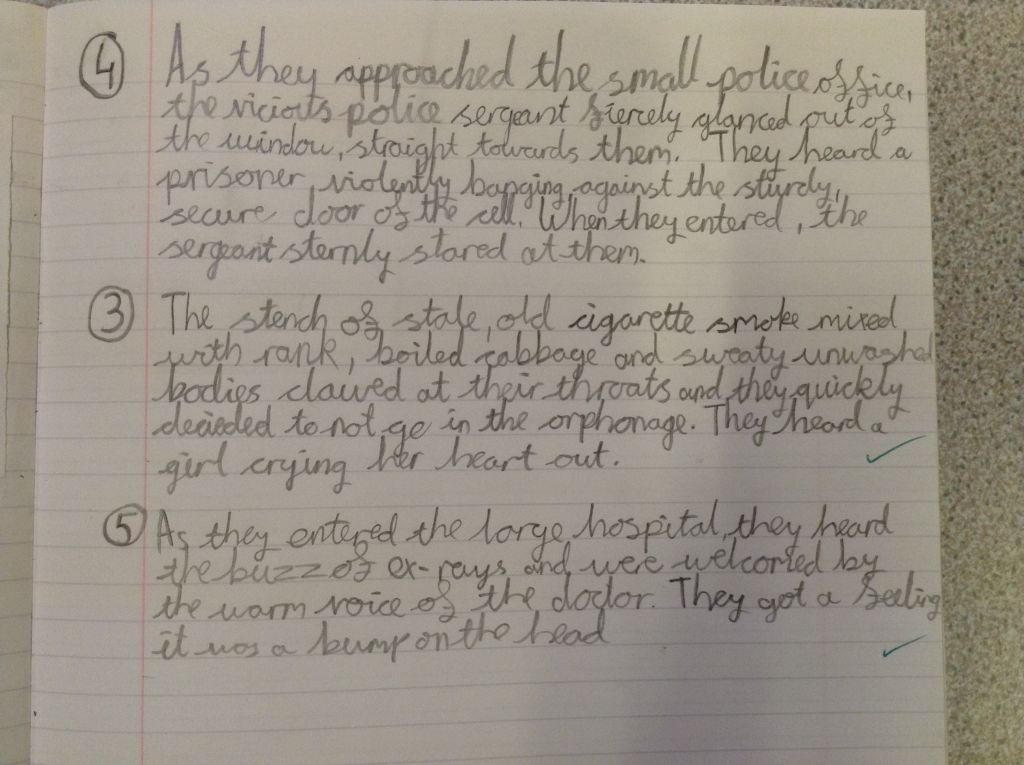 ④ As they approached the small police office,
the vicious police sergeant fiercely glanced out of
the window, straight towards them. They heard a
prisoner, violently banging against the sturdy,
secure door of the cell. When they entered, the
sergeant sternly stared at them.
③ The stench of stale, old cigarette smoke mixed
with rank, boiled cabbage and sweaty unwashed
bodies clawed at their throats and they quickly
decieded to not go in the orphonage. They heard a
girl crying her heart out.
⑤ As they entered the large hospital, they heard
the buzz of ex-rays and were welcomed by
the warm voice of the doctor. They got a feeling
it was a bump on the head